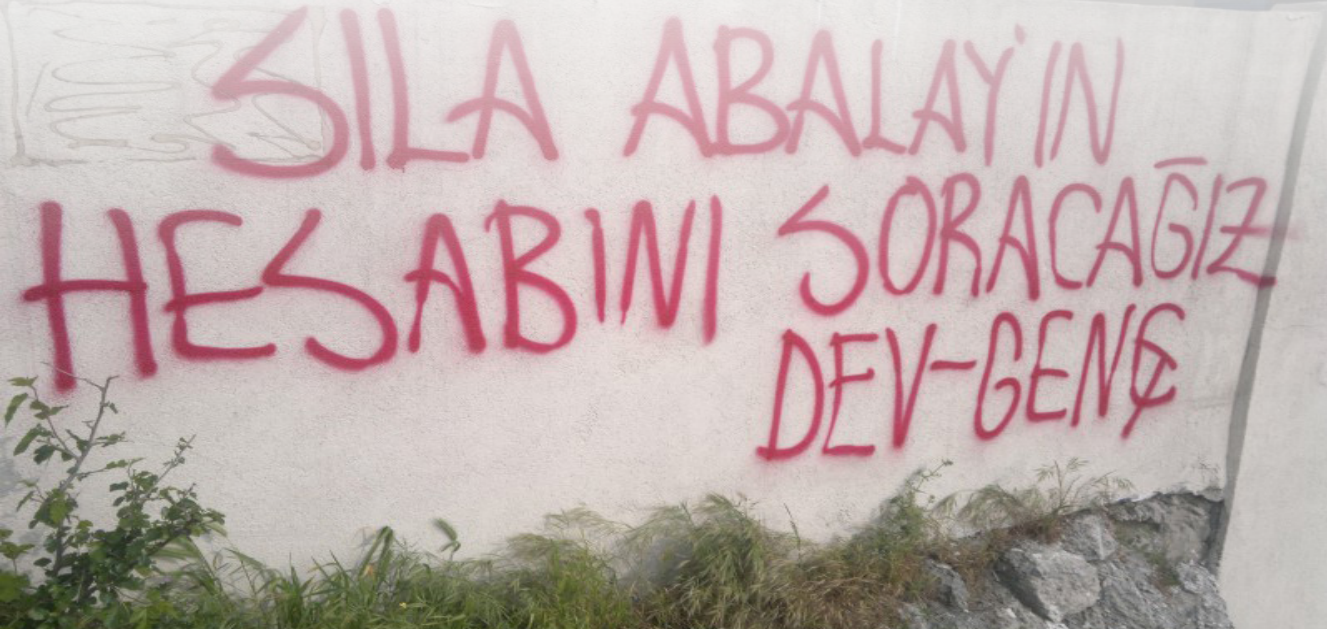 SILA ABALAY'IN
HESABINI SORACAĞIZ
DEV-GENÇ